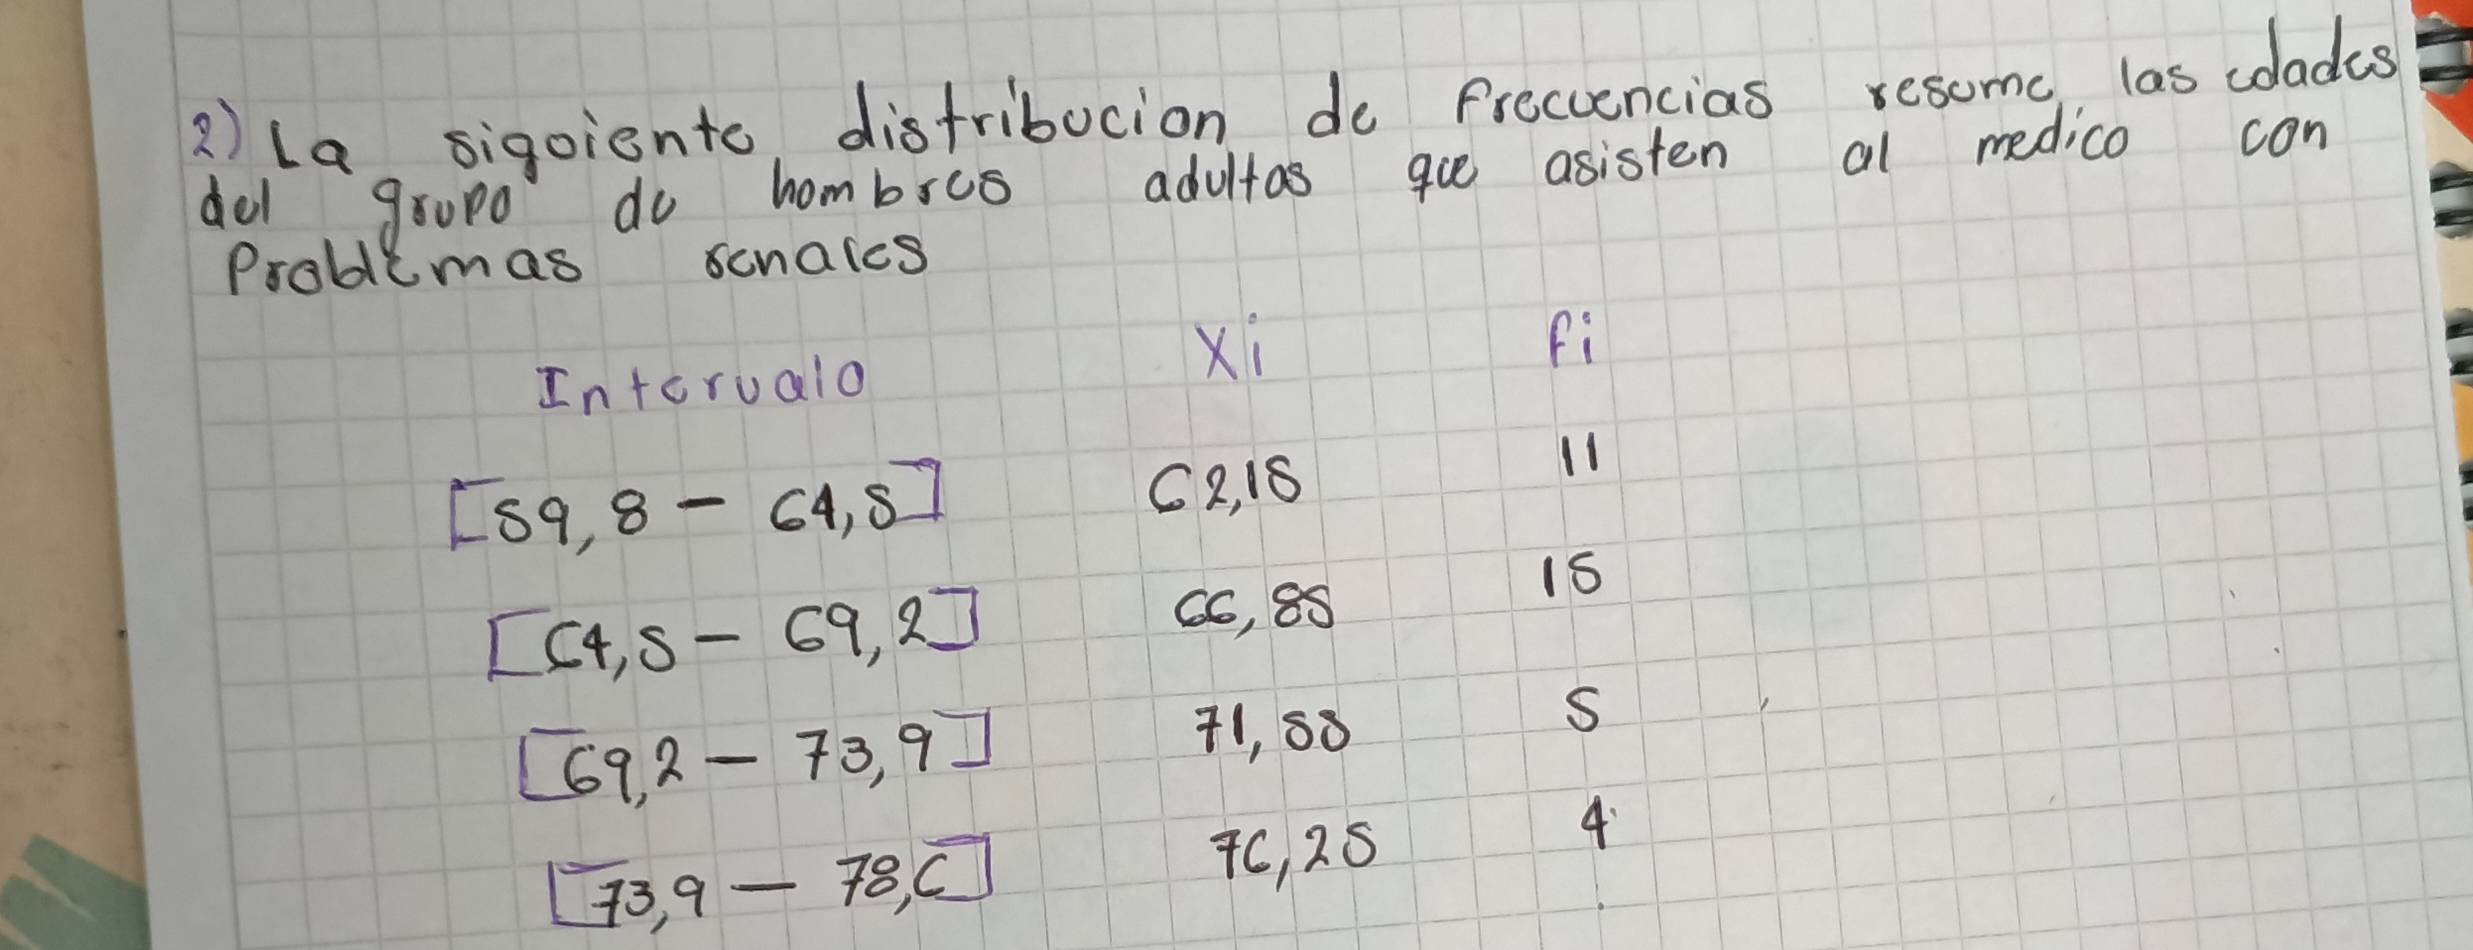 2) La siguiente distribucion de frecuencias resume, las edades
del grupo de hombres adultas que asisten al medico con
Problemas renales
Intervalo Xi fi
[59,8 - 64,5] 62,15 11
[64,5 - 69,2] 66,85 15
[69,2 - 73,9] 71,55 5
[73,9 - 78,6] 76,25 4